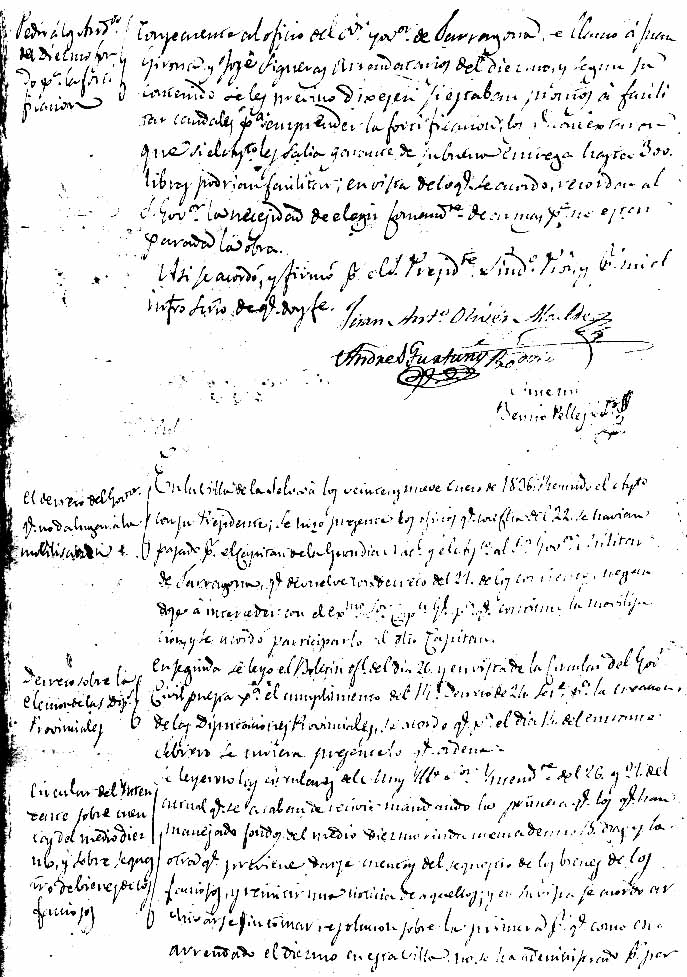 Pedir á los Arrend.s
del Diezmo
do p.a la forti
ficacion
Consecuente al oficio del Sr. Gov.or de Tarragona, se llamó á Juan
Gironés y José Figueras Arrendatarios del diezmo, y segun su
contenido se les previno dixesen si estaban promtos á facili
tar caudales p.a emprender la fortificacion, los
que si el Ayto. les salia garante de su buena entrega hasta 300.
libras podrian facilitar; en vista de lo q.e se acordó, recordar al
S. Gov.or la necesidad de elegir de mas p.a no
parada la obra.
Asi se acordó, y firmó p.r el S. Presid.te Sind.o y p.r mi el
infro Srio. de q.e doy fe.
Juan Ant.o Olivér Alcalde
Andres
Ante mi
Benito
El decreto del Gov.or
q.e no da lugar á la
En la Villa de la Selva á los veinte y nueve Enero de 1836. Reunido el Ayto
con su Presidente; se hizo presente los oficios q.e con fha del 22. se havian
pasado p.r el Capitan de la Guardia Nac.l y el Ayto. al S.r Gov.or Militar
de Tarragona, q.e devuelve con decreto del 27. de los corrientes, negan
dose á interceder con el Ex.mo Sor. Cap.n G.l p.a q.e la
cion, y se acordó participarlo al dho Capitan.
Decreto sobre la
eleccion de las Dip.s
Provinciales
En seguida se leyó el Boletin ofl. del dia 26. y en vista de la circular del Gov.
Civil p.a el cumplimiento del Decreto de 21. Set.e p.a la creacion
de las Diputaciones Provinciales, se acordó q.e p.a el dia 14. del entrante
Febrero se tuviera presente lo q.e ordena.
Circular del Inten
dente sobre cuen
tas del medio diez
mo, y sobre seques
tro de bienes de los
facciosos
Se leyeron las circulares del Muy Ille. S.or Intend.te del 26. y 27. del
actual q.e se acaban de recivir mandando la primera q.e los q.e han
manejado fondos del medio diezmo rindan cuenta dentro 15. dias y la
otra q.e previene darse cuentas del sequestro de los bienes de los
facciosos, y remitir una noticia de aquellos; y en su vista se acordó ar
chivarse sin tomar resolucion sobre la primera p.r q.e como está
arrendado el diezmo en esta Villa, no se ha administrado p.r per